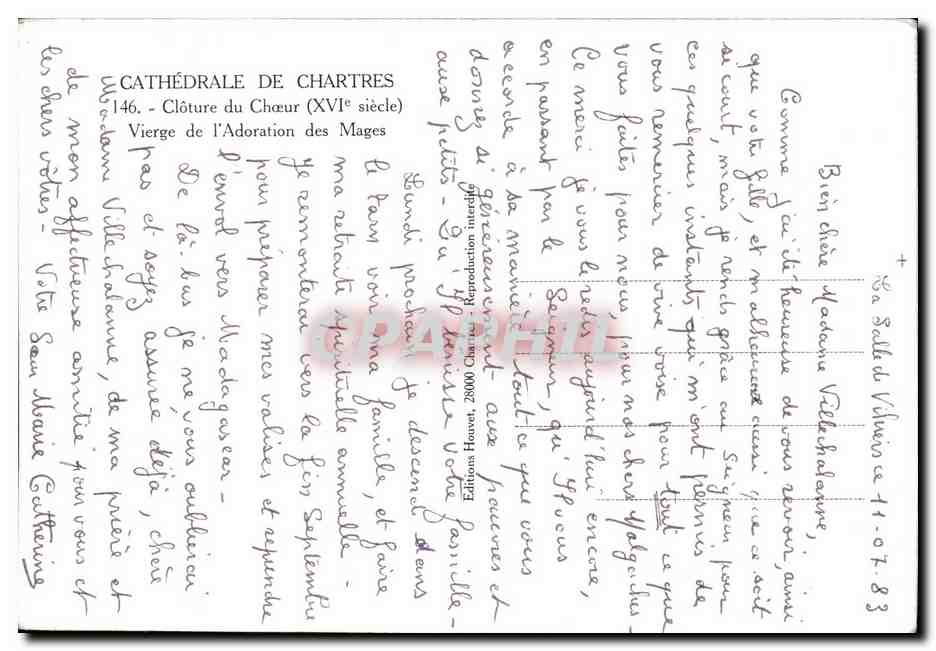 CATHÉDRALE DE CHARTRES
146. - Clôture du Chœur (XVIe siècle)
Vierge de l'Adoration des Mages
Editions Houvet, 28000 Chartres - Reproduction interdite
CPAPHIL
+
La Salle de Vihiers ce 11-07-83
Bien chère Madame Villechalanne,
Comme j'ai été heureuse de vous revoir, ainsi
que votre fille, et malheureux aussi que ce soit
si court, mais je rends grâce au Seigneur pour
ces quelques instants qui m'ont permis de
vous remercier de vive voix pour tout ce que
vous faites pour nous, pour nos chers Malgaches -
Ce merci je vous le redis aujourd'hui encore,
en passant par le Seigneur, qu'Il vous
accorde à sa manière tout ce que vous
donnez si généreusement aux pauvres et
aux petits - Qu'Il bénisse votre famille -
Lundi prochain je descend dans
le Tarn voir ma famille, et faire
ma retraite spirituelle annuelle -
Je remonterai vers la fin Septembre
pour préparer mes valises et reprendre
l'envol vers Madagascar -
De là-bas je ne vous oublierai
pas et soyez assurée déjà, chère
Madame Villechalanne, de ma prière et
de mon affectueuse amitié pour vous et
les chers vôtres - Votre Sœur Marie Catherine